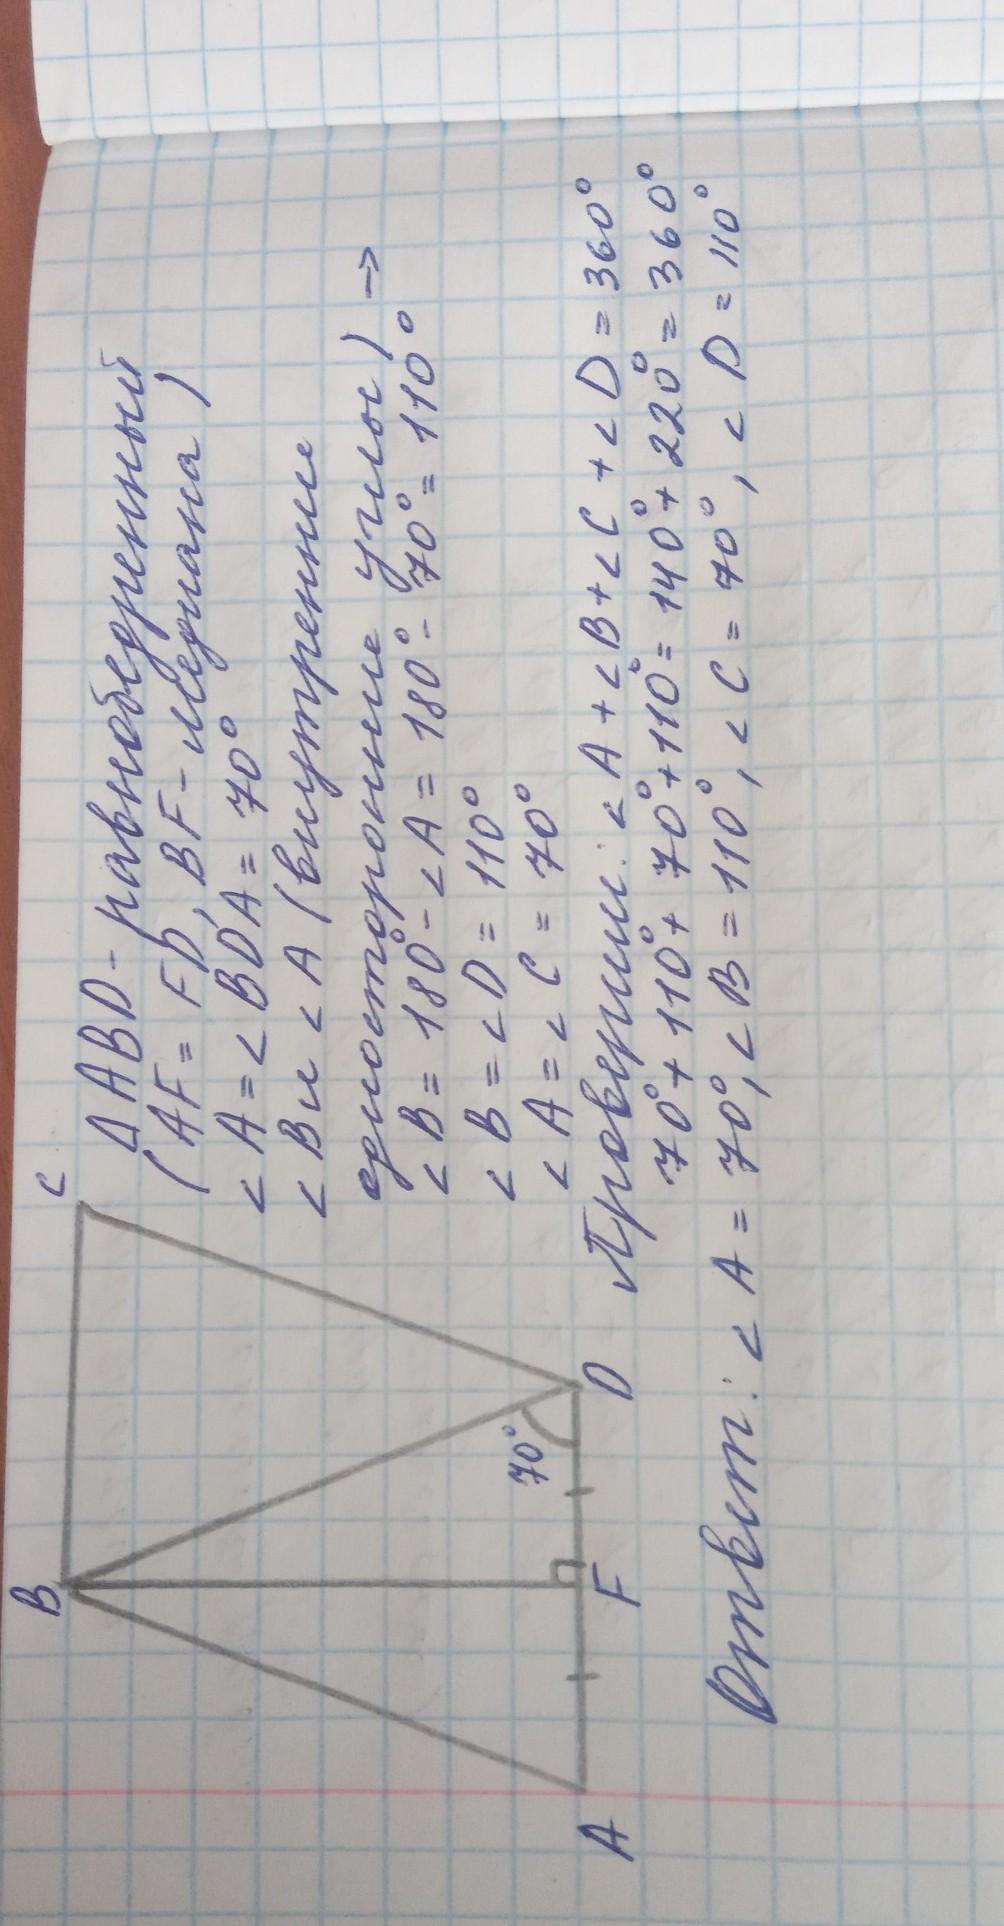 B
C
70°
A
F
D
Δ ABD - равнобедренный
(AF = FD, BF - медиана)
< A = < BDA = 70°
< B и < A (внутренние
односторонние углы) →
< B = 180° - < A = 180° - 70° = 110°
< B = < D = 110°
< A = < C = 70°
Проверим: < A + < B + < C + < D = 360°
70° + 110° + 70° + 110° = 140° + 220° = 360°
Ответ: < A = 70°, < B = 110°, < C = 70°, < D = 110°